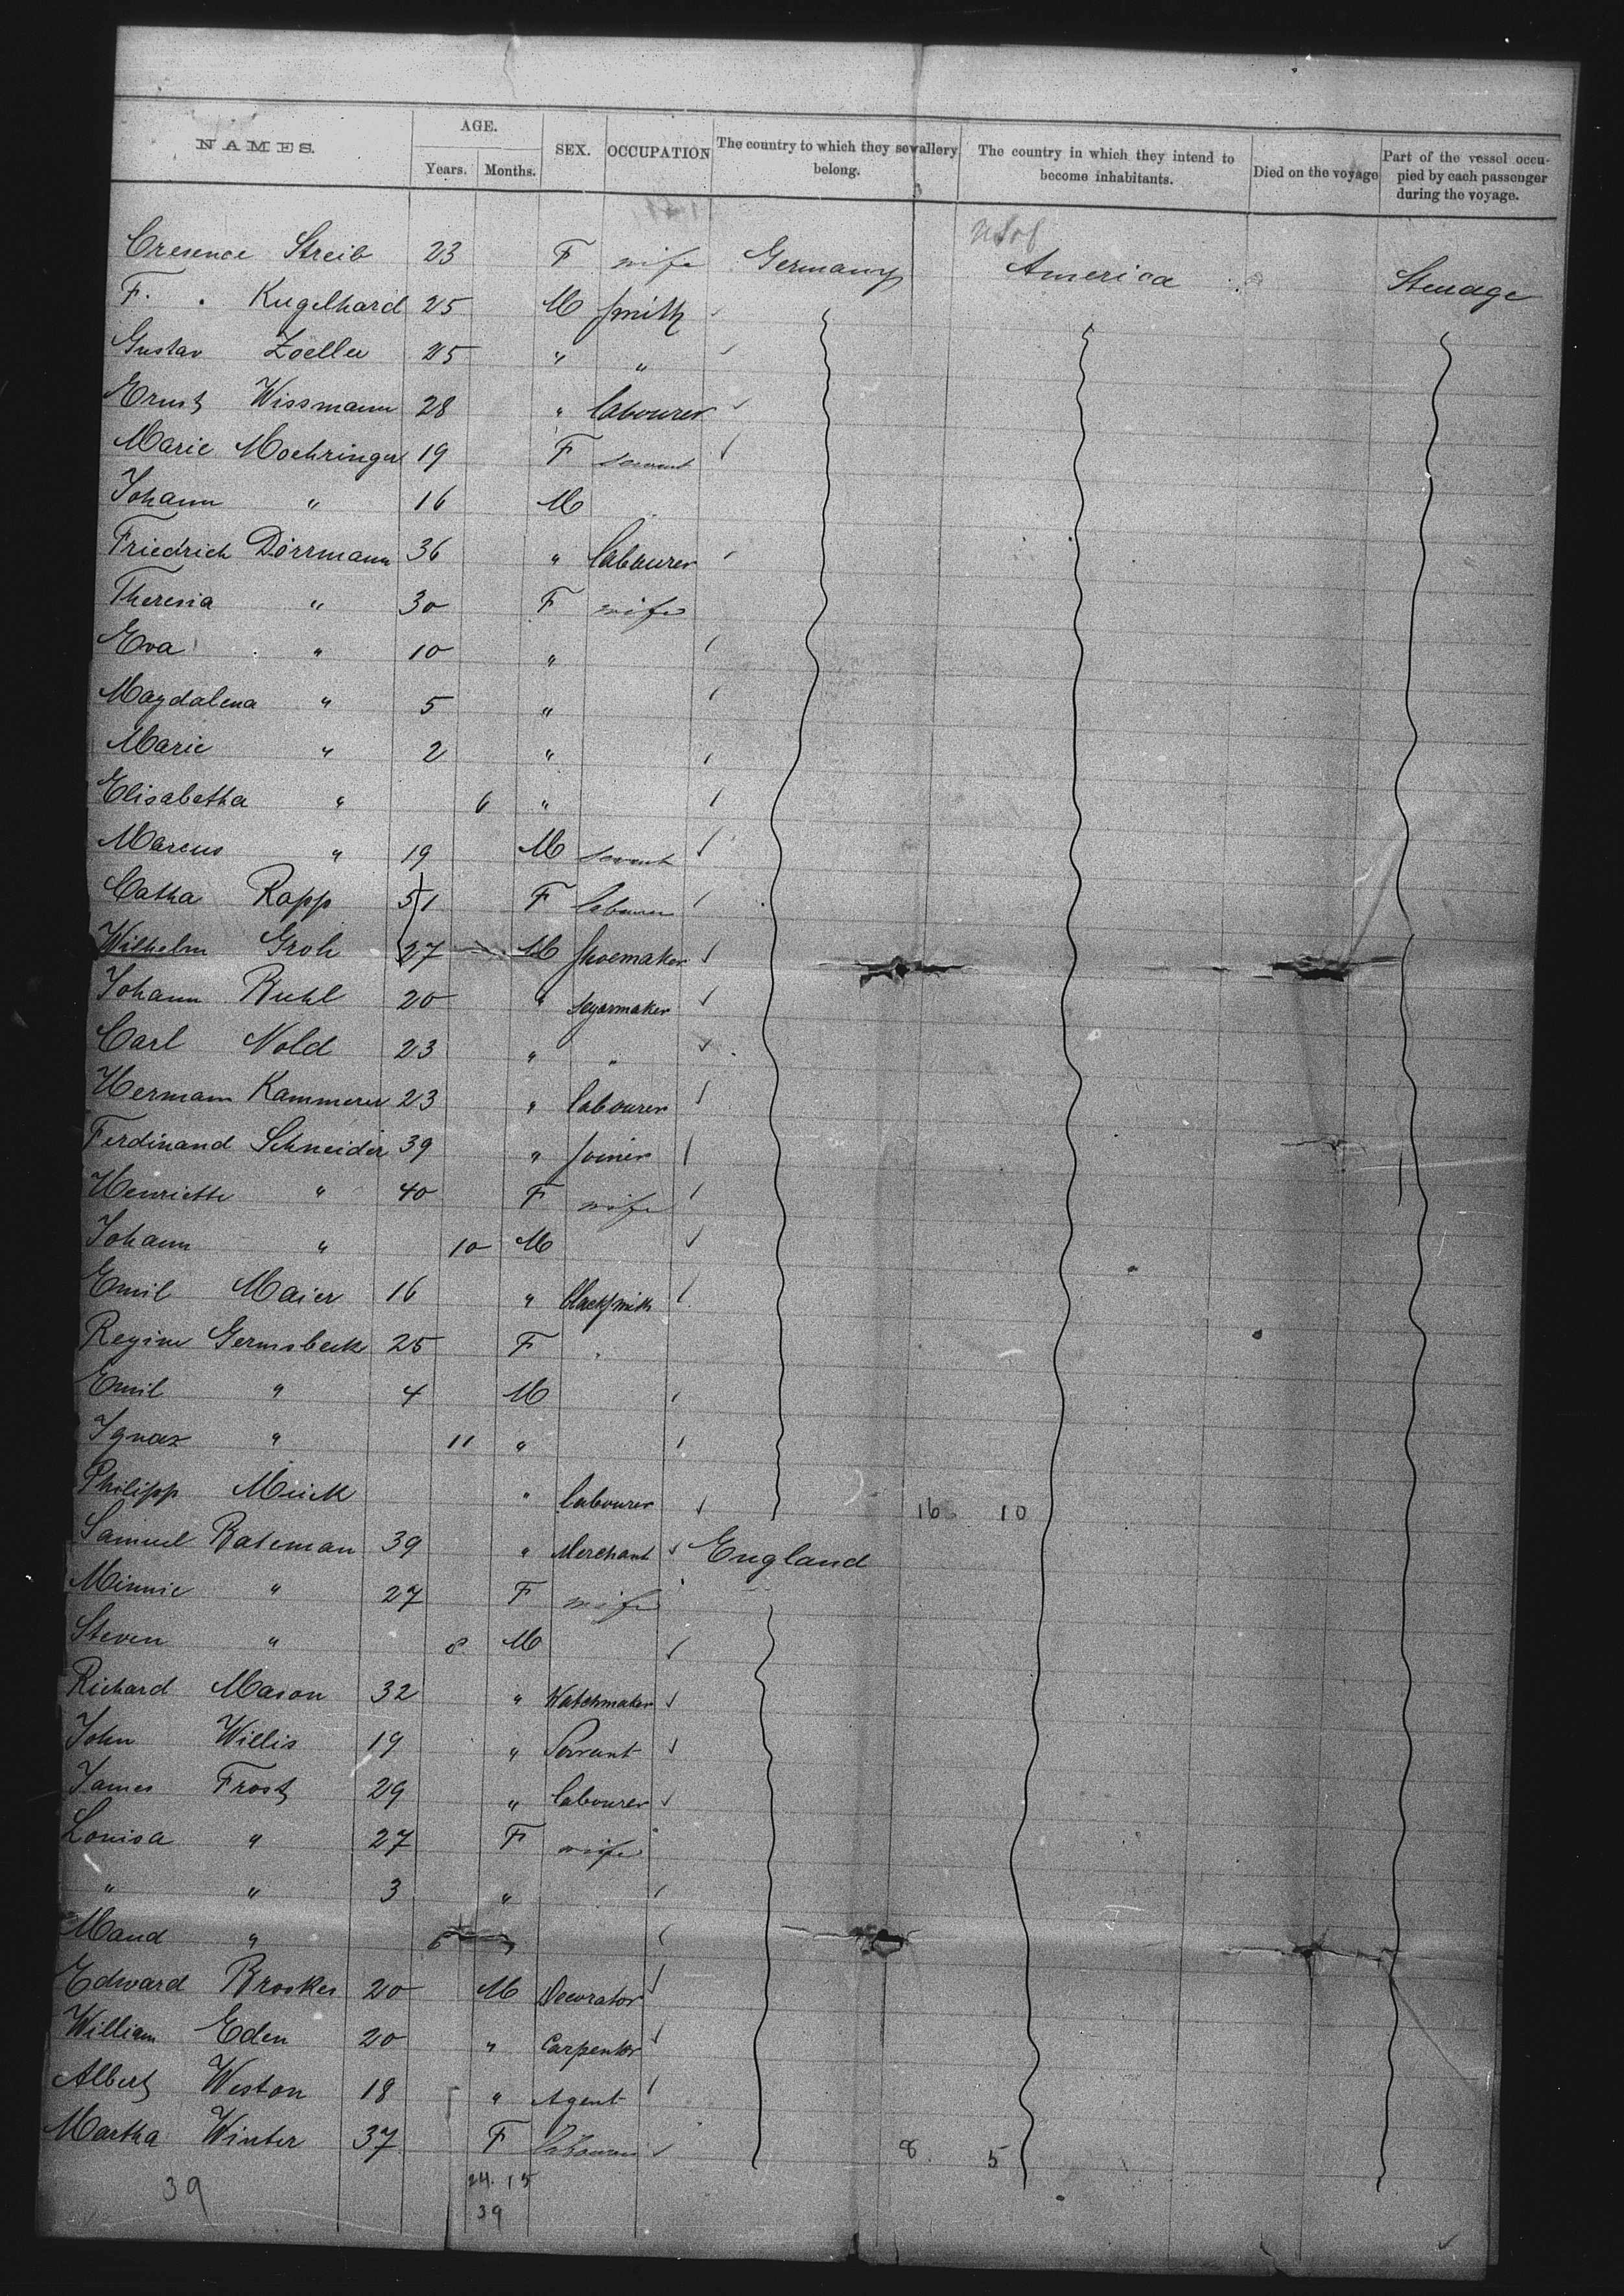 NAMES. AGE. SEX. OCCUPATION The country to which they sevallery belong. The country in which they intend to become inhabitants. Died on the voyage Part of the vessel occupied by each passenger during the voyage.
Years. Months.
U S of
Cresence Streib 23 F wife Germany America Steerage
F. Kugelhard 25 M Smith
Gustav Zoeller 25 " "
Ernst Wissmann 28 " labourer
Marie Moehringer 19 F servant
Johann " 16 M
Friedrich Dörrmann 36 " labourer
Theresia " 30 F wife
Eva " 10 "
Magdalena " 5 "
Marie " 2 "
Elisabetha " 6 "
Marcus " 19 M servant
Catha Rapp 51 F labourer
Wilhelm Groh 27 M Shoemaker
Johann Ruhl 20 " segarmaker
Carl Nold 23 " "
Hermann Kammerer 23 " labourer
Ferdinand Schneider 39 " Joiner
Henriette " 40 F wife
Johann " 10 M
Emil Maier 16 " blacksmith
Regine Germsbeck 25 F
Emil " 4 M
Ignaz " 11 "
Philipp Mück " labourer 16 10
Samuel Bateman 39 " Merchant England
Minnie " 27 F wife
Steven " 8 M
Richard Mason 32 " Watchmaker
John Willis 19 " Servant
James Frost 29 " labourer
Louisa " 27 F wife
" " 3 "
Maud " 6 "
Edward Brookes 20 M Decorator
William Eden 20 " Carpenter
Albert Weston 18 " Agent
Martha Winter 37 F labourer 8 5
39 24. 15
39